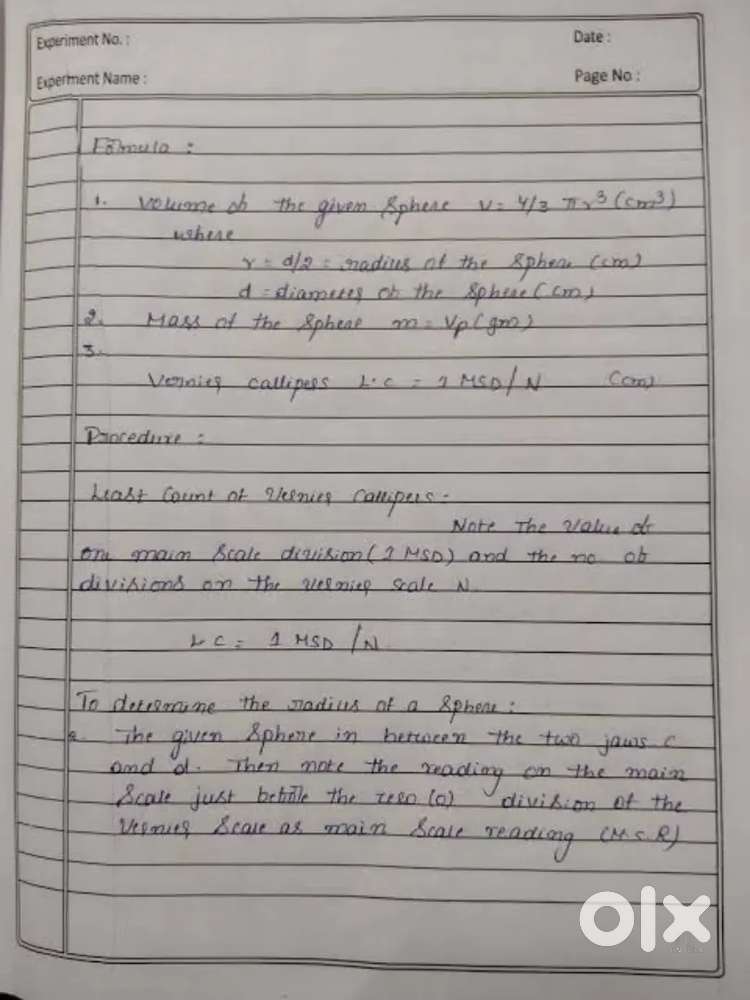 Experiment No. :
Date :
Experment Name :
Page No :
Formula :
1. Volume of the given Sphere V = 4/3 πr³ (cm³)
where
r = d/2 = radius of the Sphere (cm)
d = diameter of the Sphere (cm)
2. Mass of the Sphere m = Vρ (gm)
3.
Vernier callipers L.C = 1 MSD/N (cm)
Procedure :
Least Count of Vernier Callipers -
Note The Value of
one main Scale division (1 MSD) and the no. of
divisions on the vernier scale N.
LC = 1 MSD/N.
To determine the radius of a Sphere :
The given Sphere in between the two jaws c
and d. Then note the reading on the main
Scale just before the zero (0) division of the
Vernier Scale as main Scale reading (M.S.R)
olx